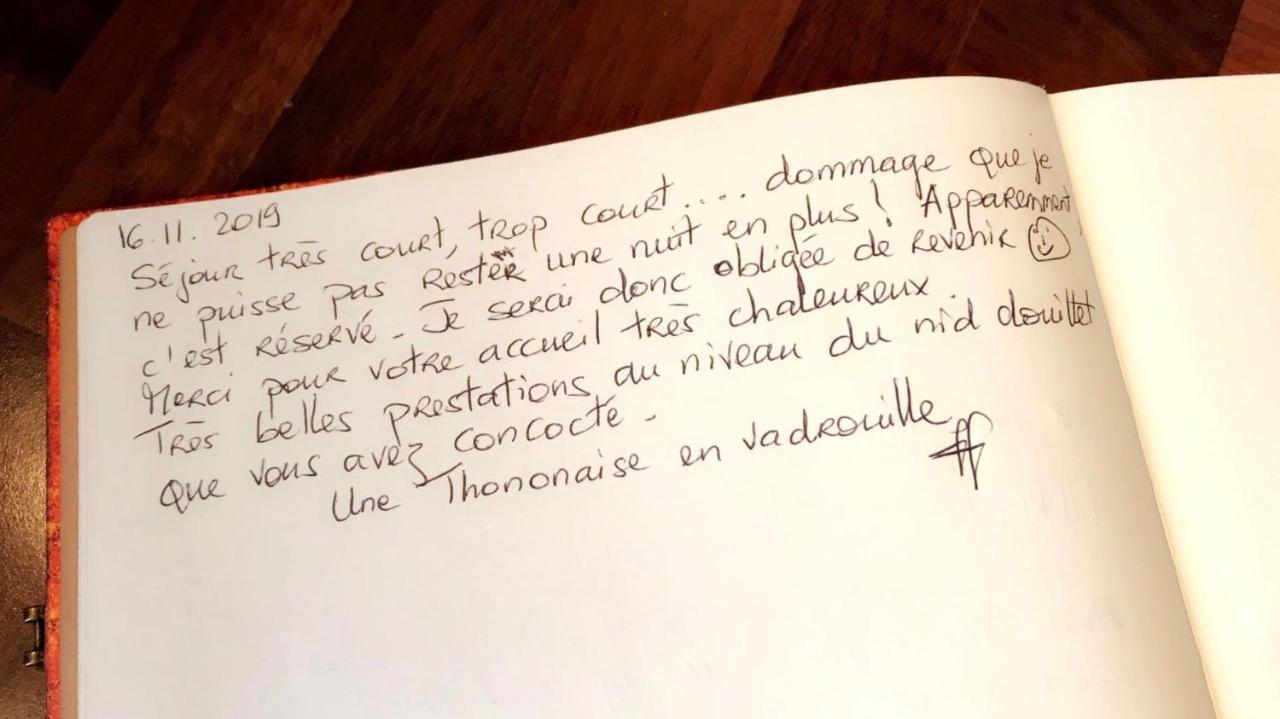 16.11.2019
Séjour très court, trop court.... dommage que je
ne puisse pas rester une nuit en plus ! Apparemment,
c'est réservé - Je serai donc obligée de revenir ☺
Merci pour votre accueil très chaleureux.
Très belles prestations au niveau du nid douillet
que vous avez concocté -
Une Thononaise en vadrouille